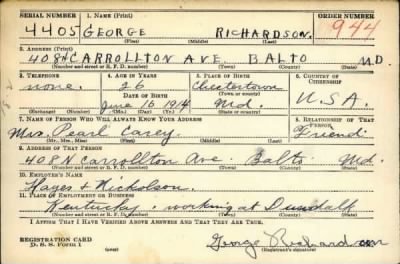 SERIAL NUMBER 1. NAME (Print) ORDER NUMBER
4405 GEORGE RICHARDSON. 944
(First) (Middle) (Last)
2. ADDRESS (Print)
408 N CARROLLTON AVE BALTO MD.
(Number and street or R. F. D. number) (Town) (County) (State)
3. TELEPHONE 4. AGE IN YEARS 5. PLACE OF BIRTH 6. COUNTRY OF CITIZENSHIP
none. 26 Chestertown
DATE OF BIRTH (Town or county)
June 16 1914 Md. U.S.A.
(Mo.) (Day) (Yr.) (State or country)
7. NAME OF PERSON WHO WILL ALWAYS KNOW YOUR ADDRESS 8. RELATIONSHIP OF THAT PERSON
Mrs. Pearl Carey. Friend
(Mr., Mrs., Miss) (First) (Middle) (Last)
9. ADDRESS OF THAT PERSON
408 N Carrollton Ave. Balto. Md.
(Number and street or R. F. D. number) (Town) (County) (State)
10. EMPLOYER'S NAME
Hayes & Nickolson.
11. PLACE OF EMPLOYMENT OR BUSINESS
Kentucky. working at Dundalk
(Number and street or R. F. D. number) (Town) (County) (State)
I AFFIRM THAT I HAVE VERIFIED ABOVE ANSWERS AND THAT THEY ARE TRUE.
REGISTRATION CARD George Richardson
D. S. S. FORM 1 (Registrant's signature)